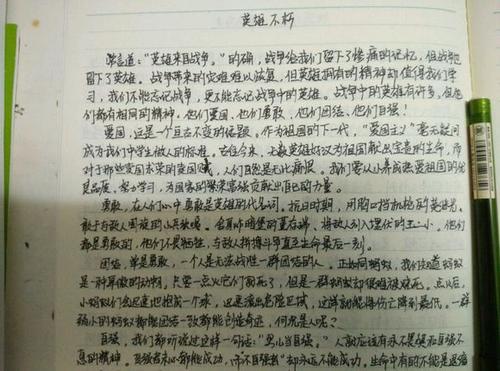 英雄不朽
常言道："英雄来自战争。"的确,战争给我们留下了惨痛的记忆,但战争也
留下了英雄。战争带来的灾难难以恢复,但英雄拥有的精神却值得我们学
习,我们不能忘记战争,更不能忘记战争中的英雄。战争中的英雄有许多,但他
们都有相同的精神,他们爱国、他们勇敢、他们团结、他们自强!
爱国,这是一个亘古不变的话题。作为祖国的下一代,"爱国主义"毫无疑问
成为我们中学生做人的标准。古往今来,无数英雄好汉为祖国献出宝贵的生命,而
对于那些卖国求荣的卖国贼,人们自然是无比痛恨。我们要从小养成热爱祖国的优
良品质,努力学习,为国家的繁荣富强贡献出自己的力量。
勇敢,在人们心中勇敢是英雄的代名词。抗日时期,用胸口挡机枪的黄继光,
敢于与敌人周旋的小兵张嘎。舍身炸碉堡的董存瑞,将敌人引入埋伏的王二小,他们
都是勇敢的,他们不畏牺牲,与敌人拼搏斗争直至生命最后一刻。
团结,单是勇敢,一个人是无法战胜一群团结的人。正如同蚂蚁,我们知道蚂蚁
是一种卑微的动物,只要一点火它们就死了,但是一群蚂蚁却很难被烧死。点火后,
小蚂蚁们会迅速地抱成一个球,迅速滚出危险区域,这样就能将伤亡降到最低。一群
弱小的蚂蚁都能团结一致都能创造奇迹,何况是人呢?
自强,我们都听说过这样一句话:"男儿当自强。"人就应该有永不畏惧和自强不
息的精神。自强者未必都能成功,而不自强者却永远不能成功。生命中有的不能是退缩